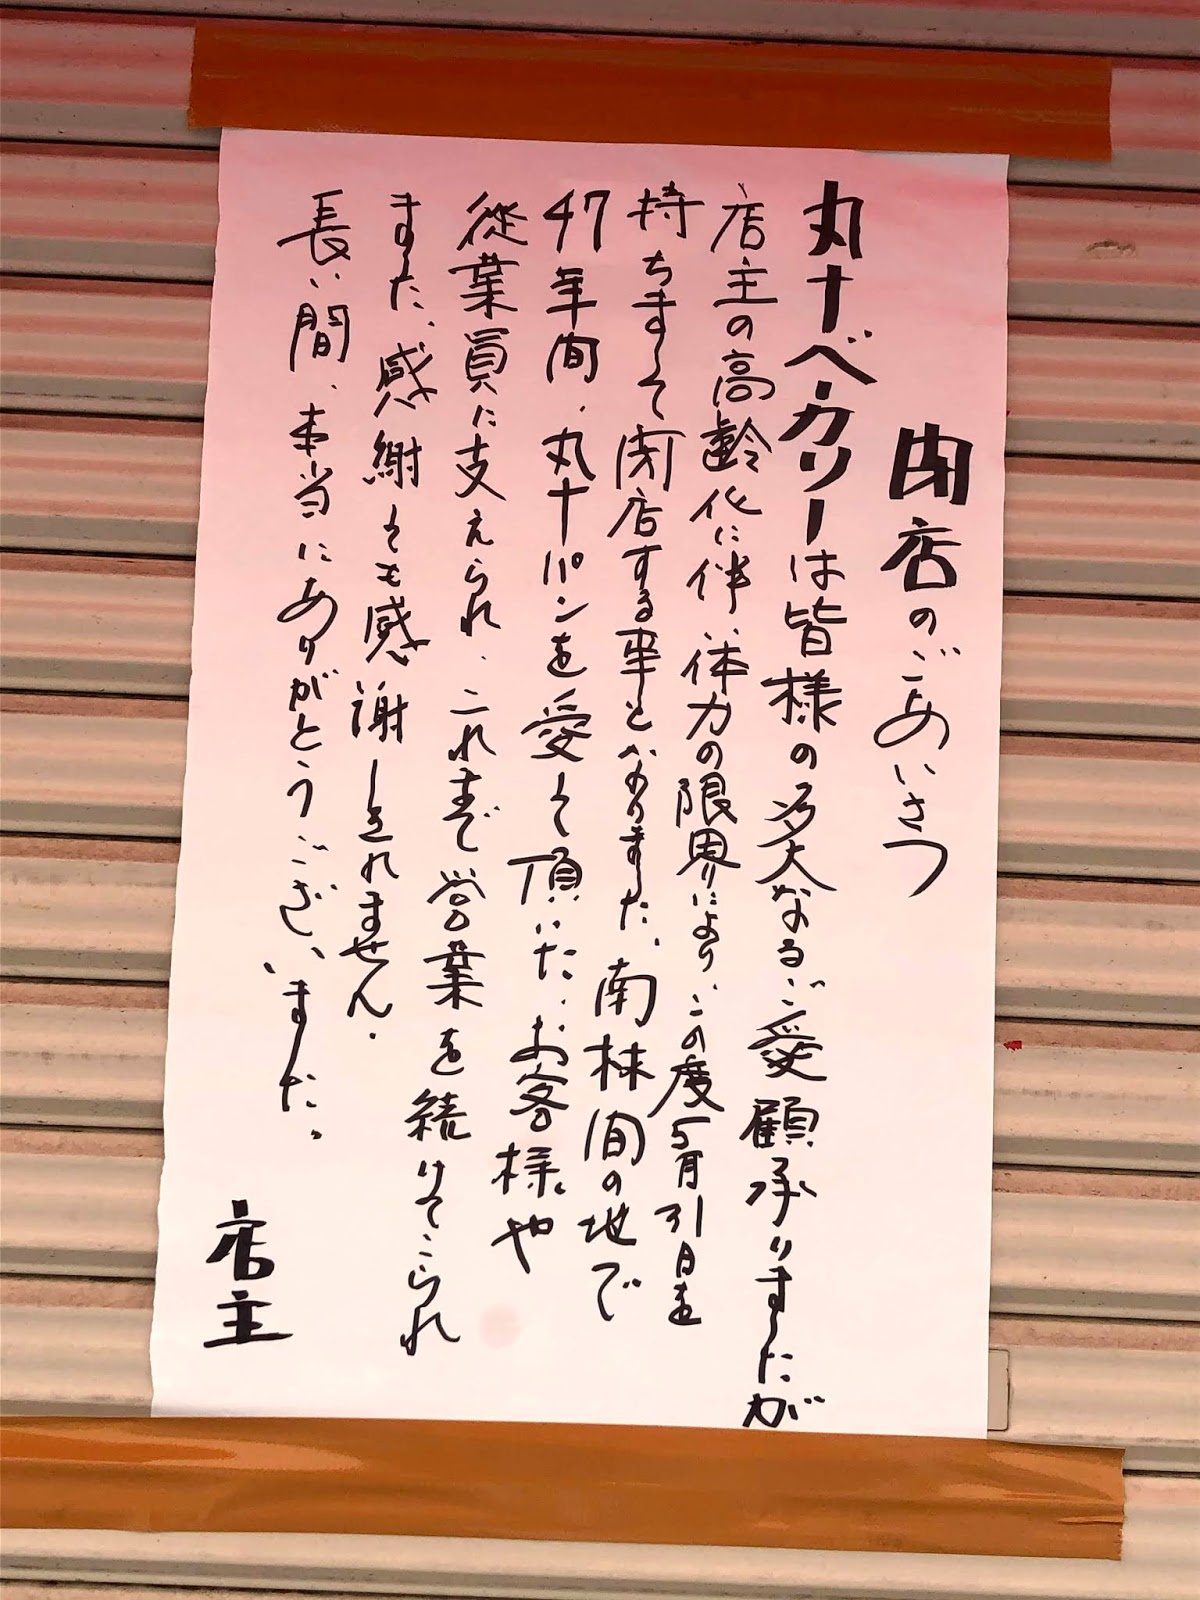 閉店のごあいさつ
丸十ベーカリーは皆様の多大なるご愛顧承りましたが
店主の高齢化に伴い体力の限界により、この度5月31日を
持ちまして閉店する事となりました、南林間の地で
47年間、丸十パンを愛して頂いた、お客様や
従業員に支えられ、これまで営業を続けてこられ
ました、感謝しても感謝しきれません。
長い間、本当にありがとうございました。
店主